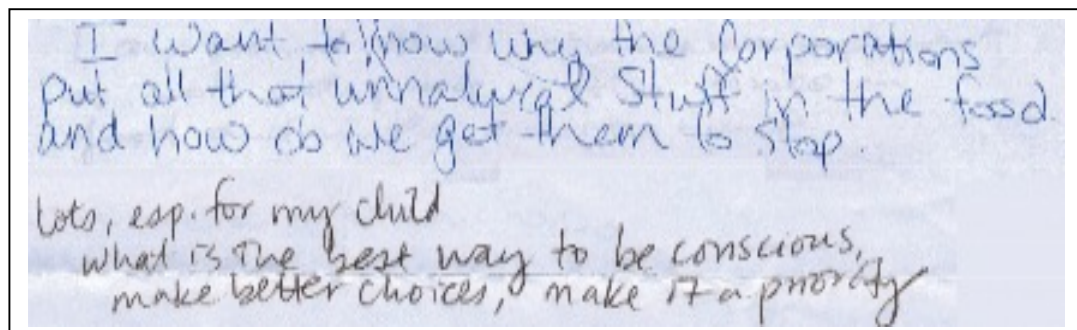 I want to know why the Corporations
put all that unnatural stuff in the food.
and how do we get them to stop
Lots, esp. for my child
what is the best way to be conscious,
make better choices, make it a priority